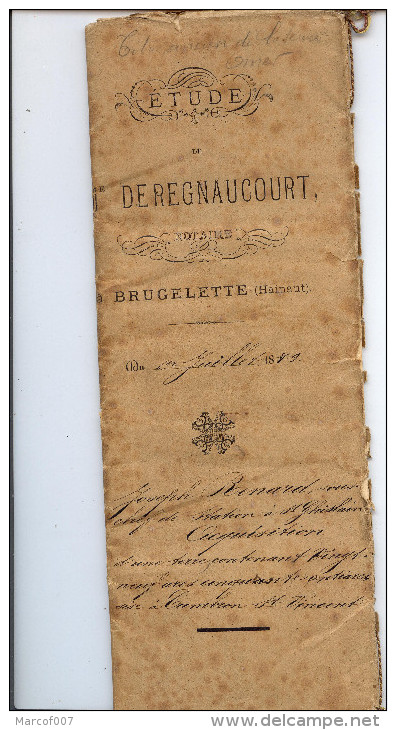 ÉTUDE
DE
DEREGNAUCOURT,
NOTAIRE
à BRUGELETTE (Hainaut).
Du Juillet 1889.
Joseph Renard, sous
chef de station à St Ghislain
Acquisition
d'une terre contenant Vingt
neuf ares cinquante centiares
sise à St Vincent
Marcof007
delcampe.net